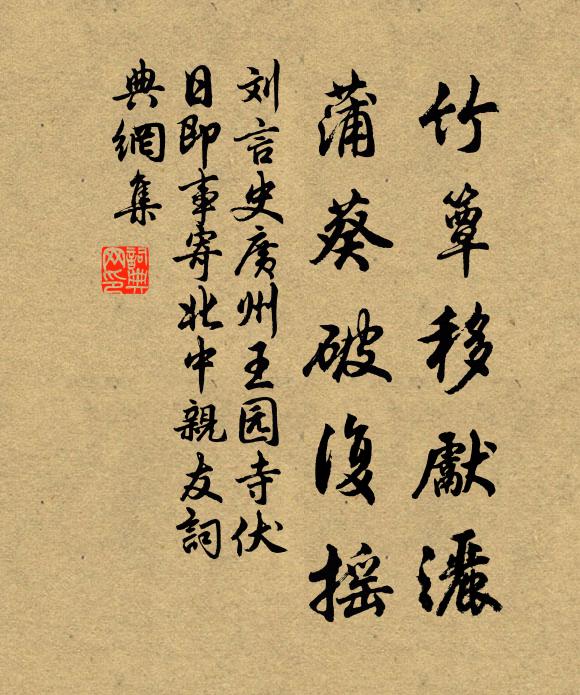 竹簟移獻灑
蒲葵破復摇
刘言史廣州王园寺伏
日即事寄北中親友詞
典網集
詞典
网印